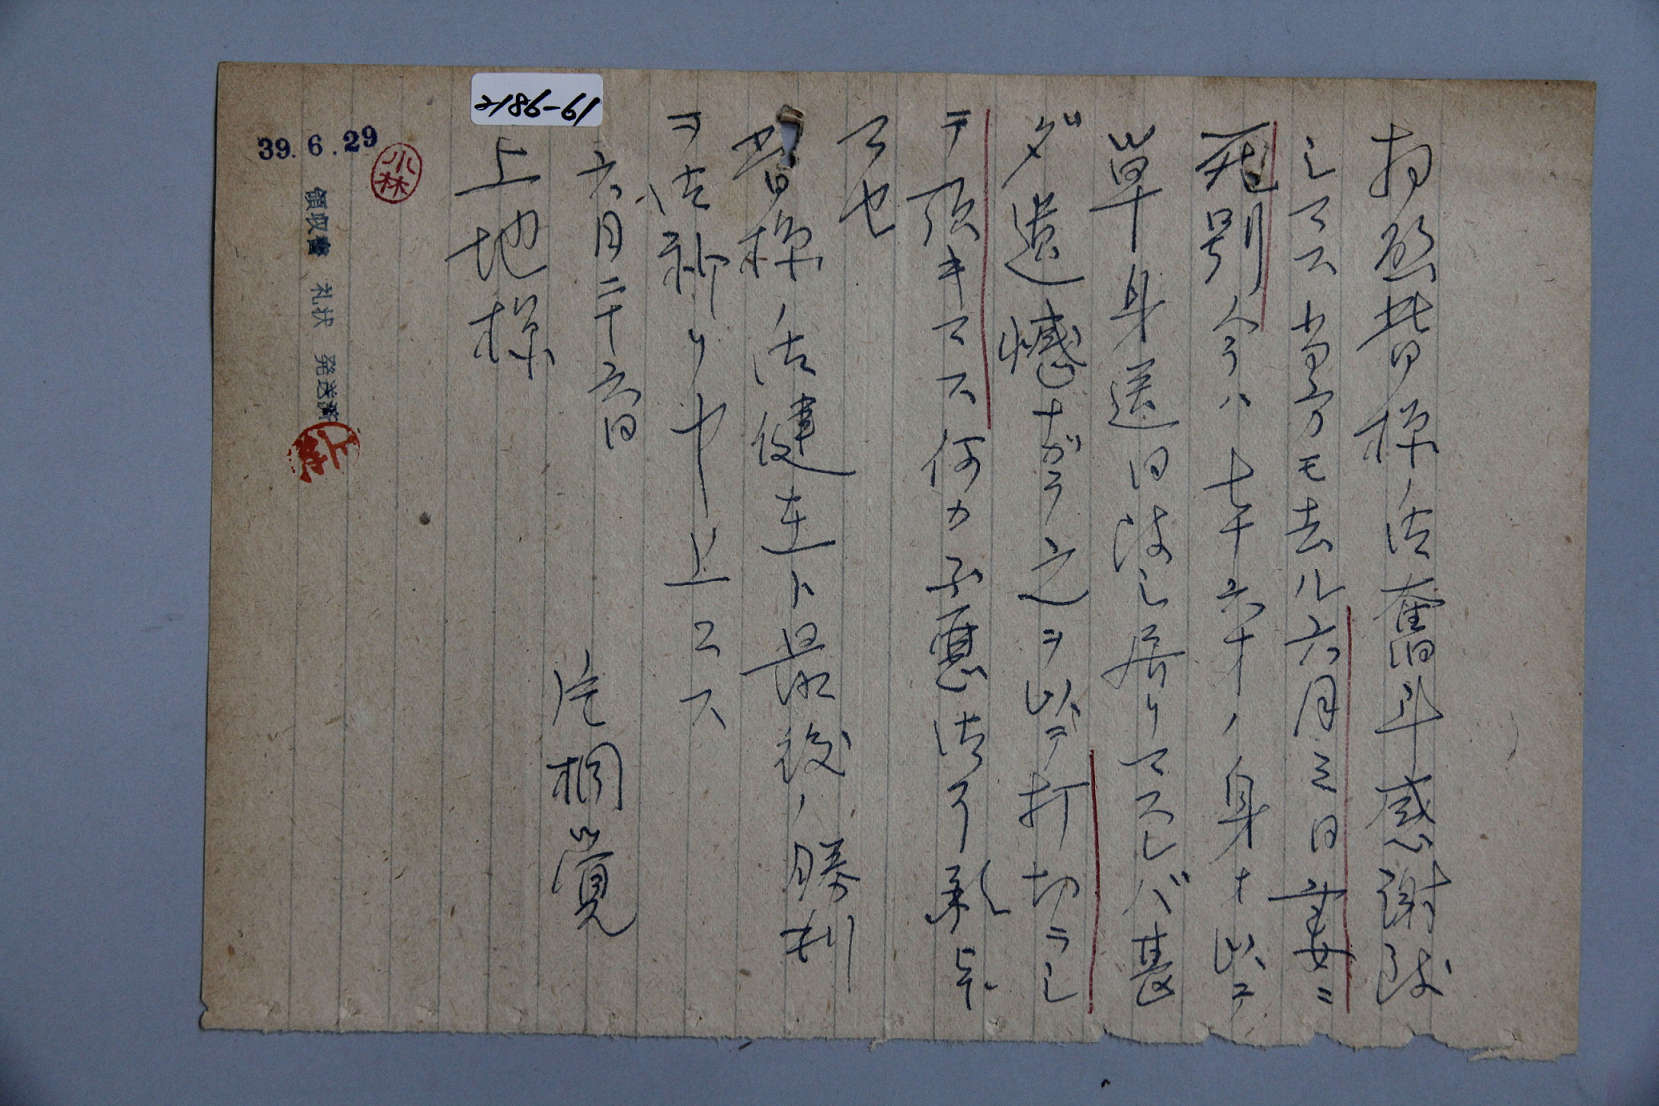 拝啓皆様ノ御奮斗感謝致
シマス当方モ去ル六月三日妻ニ
死別今ハ七十六才ノ身ヲ以テ
単身送日致シ居リマスレバ甚
ダ遺憾ナガラ之ヲ以テ打切ラシ
テ頂キマス何カ不悪御了承下
マセ
皆様ノ御健在ト最後ノ勝利
ヲ御祈リ申上マス
六月二十六日
片桐覚
上地様
2186-61
39.6.29
小林
領収書 礼状 発送済
上地